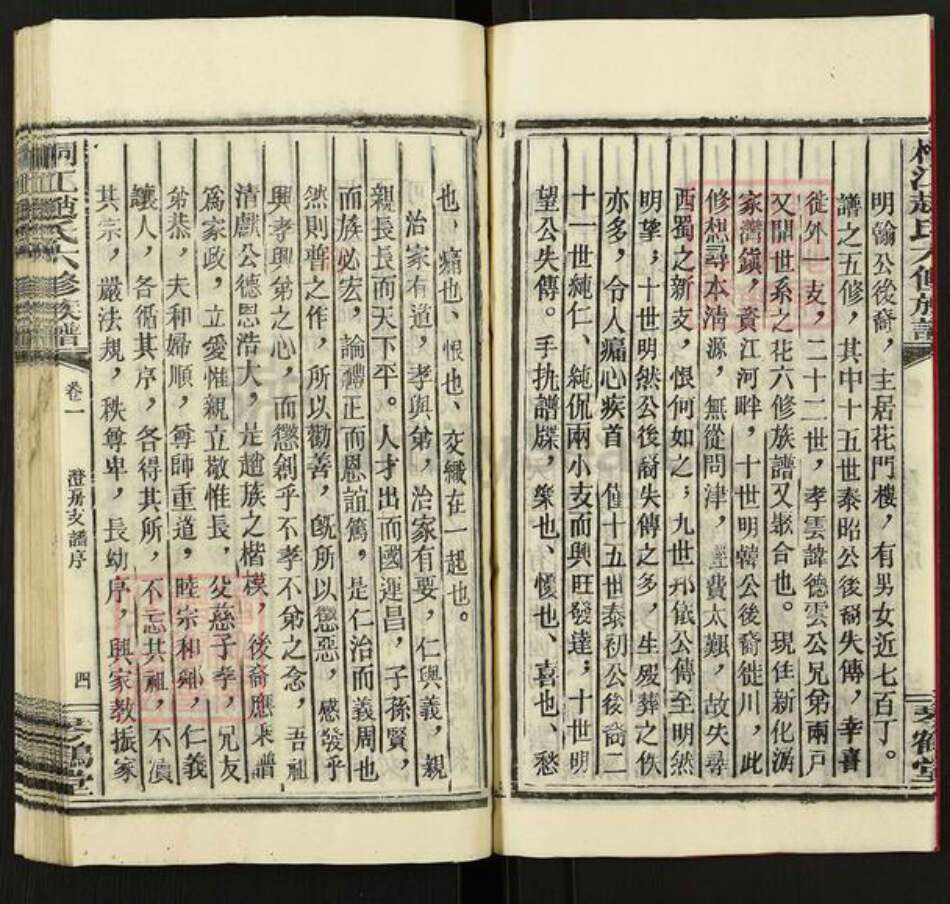 明翰公後裔，主居花門樓，有男女近七百丁。
譜之五修，其中十五世泰昭公後裔失傳，幸喜
徙外一支，二十二世，孝雲諱德雲公兄弟兩戶
又開世系之花六修族譜又聚合也。現住新化潺
家灣鎮，資江河畔，十世明韓公後裔徙川，此
修想尋本清源，無從問津，經費太艱，故失尋
西蜀之新支，恨何如之；九世邦儀公傳至明然
明挚；十世明然公後裔失傳之多，生殁葬之佚
亦多，令人痛心疾首 僅十五世泰初公後裔二
十一世純仁、純侃兩小支而興旺發達；十世明
望公失傳。手执譜牒，樂也、憂也、喜也、愁
也、痛也、恨也、交織在一起也。
治家有道，孝與弟，治家有要，仁與義，親
親長長而天下平。人才出而國運昌，子孫賢，
而族必宏，論禮正而恩誼篤，是仁治而義周也
然則譜之作，所以勸善，旣所以懲惡，感發乎
興孝興弟之心，而懲創乎不孝不弟之念，吾祖
清獻公德恩浩大，是趙族之楷模，後裔應秉譜
爲家政，立愛惟親立敬惟長，父慈子孝，兄友
弟恭，夫和婦順，尊師重道，睦宗和鄉，仁義
讓人，各循其序，各得其所，不忘其祖，不瀆
其宗，嚴法規，秩尊卑，長幼序，興家教振家
桐江趙氏六修族譜
卷一
澄房支譜序
四
琴鶴堂